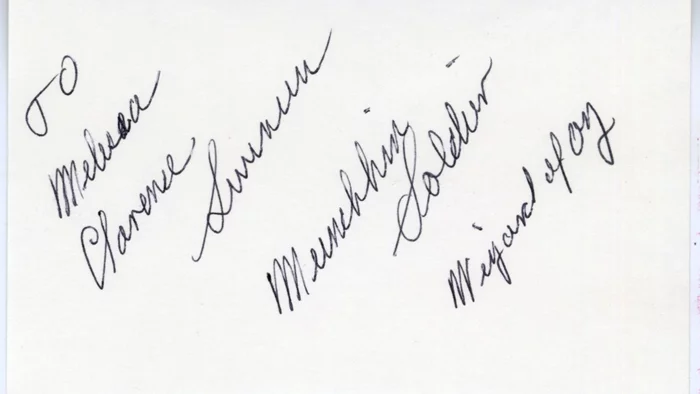 To
Melissa
Clarence Swensen
Munchkin
Soldier
Wizard of Oz